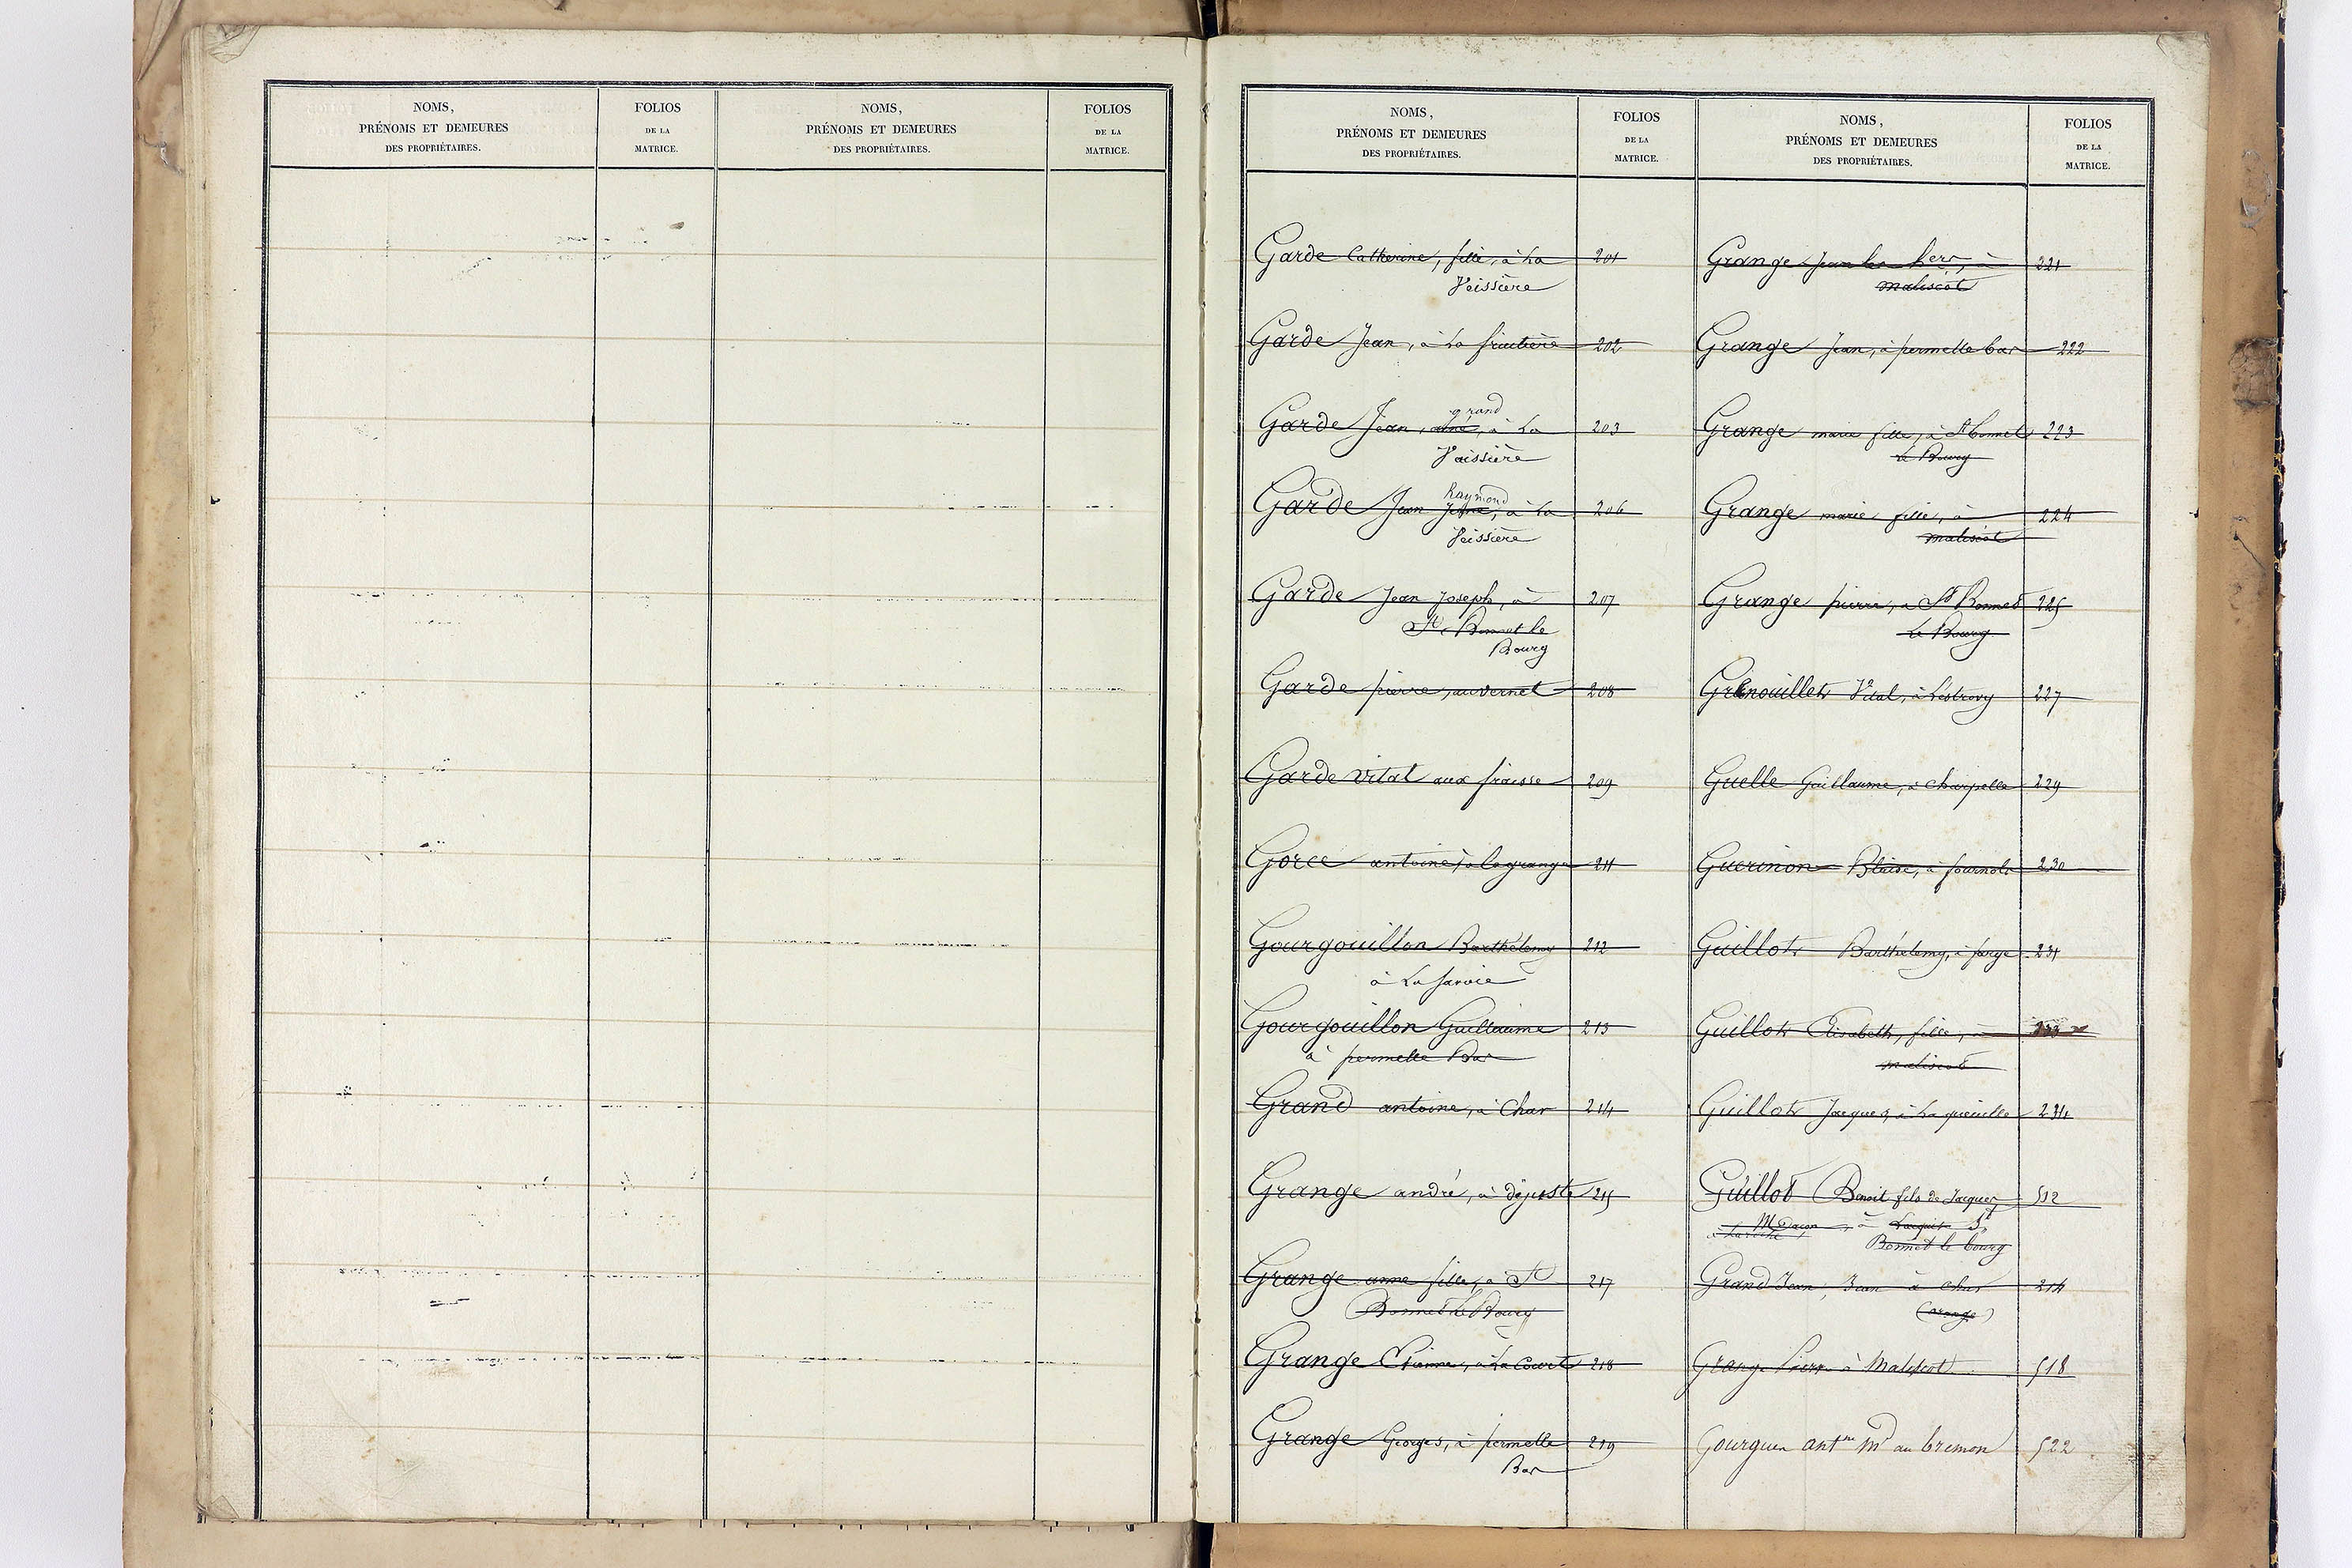 NOMS,
PRÉNOMS ET DEMEURES
DES PROPRIÉTAIRES.
FOLIOS
DE LA
MATRICE.
NOMS,
PRÉNOMS ET DEMEURES
DES PROPRIÉTAIRES.
FOLIOS
DE LA
MATRICE.
NOMS,
PRÉNOMS ET DEMEURES
DES PROPRIÉTAIRES.
FOLIOS
DE LA
MATRICE.
Garde Catherine, fille, à La 201
Veissière
Garde Jean, à La fruitière 202
grand
Garde Jean, aîné, à La 203
Vaissière
Raymond
Garde Jean jeune, à La 206
Veissière
Garde Jean Joseph, à 207
St Bonnet le
Bourg
Garde pierre, au vernet 208
Garde vital aux fraisse 209
Gorce antoine, à lagrange 211
Gourgouillon Barthélemy 212
à La
Gourgouillon Guillaume 213
à permelle Bas
Grand antoine, à Char 214
Grange andré, à 215
Grange anne fille, à St 217
Bonnet Le Bourg
Grange Etienne, à La Court 218
Grange Georges, à permelle 219
Bas
NOMS,
PRÉNOMS ET DEMEURES
DES PROPRIÉTAIRES.
FOLIOS
DE LA
MATRICE.
Grange Jean les hers, à 221
maliscot
Grange Jean, à permelle bas 222
Grange marie fille, à St Bonnet 223
Le Bourg
Grange marie fille, à 224
maliscot
Grange pierre, à St Bonnet 225
Le Bourg
Grenouillet Vital, à 227
Guelle Guillaume, à 229
Guerinon Blaise, à fournols 230
Guillot Barthélemy, à forge 231
Guillot Elisabeth, fille, à 233
maliscot
Guillot Jacques, à La queuille 234
Guillot Benoit fils de Jacques 512
Maçon, à St
Bonnet le bourg
Grand Jean, Jean à Char 214
(Grange)
Grange Pierre à Maliscot 518
Gourguen antne md au bremon 522